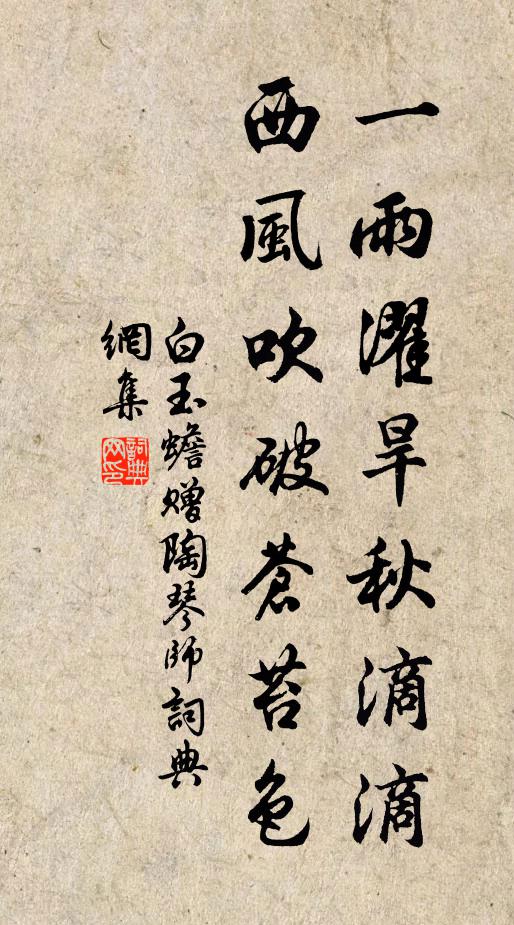 一雨濯旱秋滴滴
西風吹破蒼苔色
白玉蟾贈陶琴師詞典
網集
詞典網印